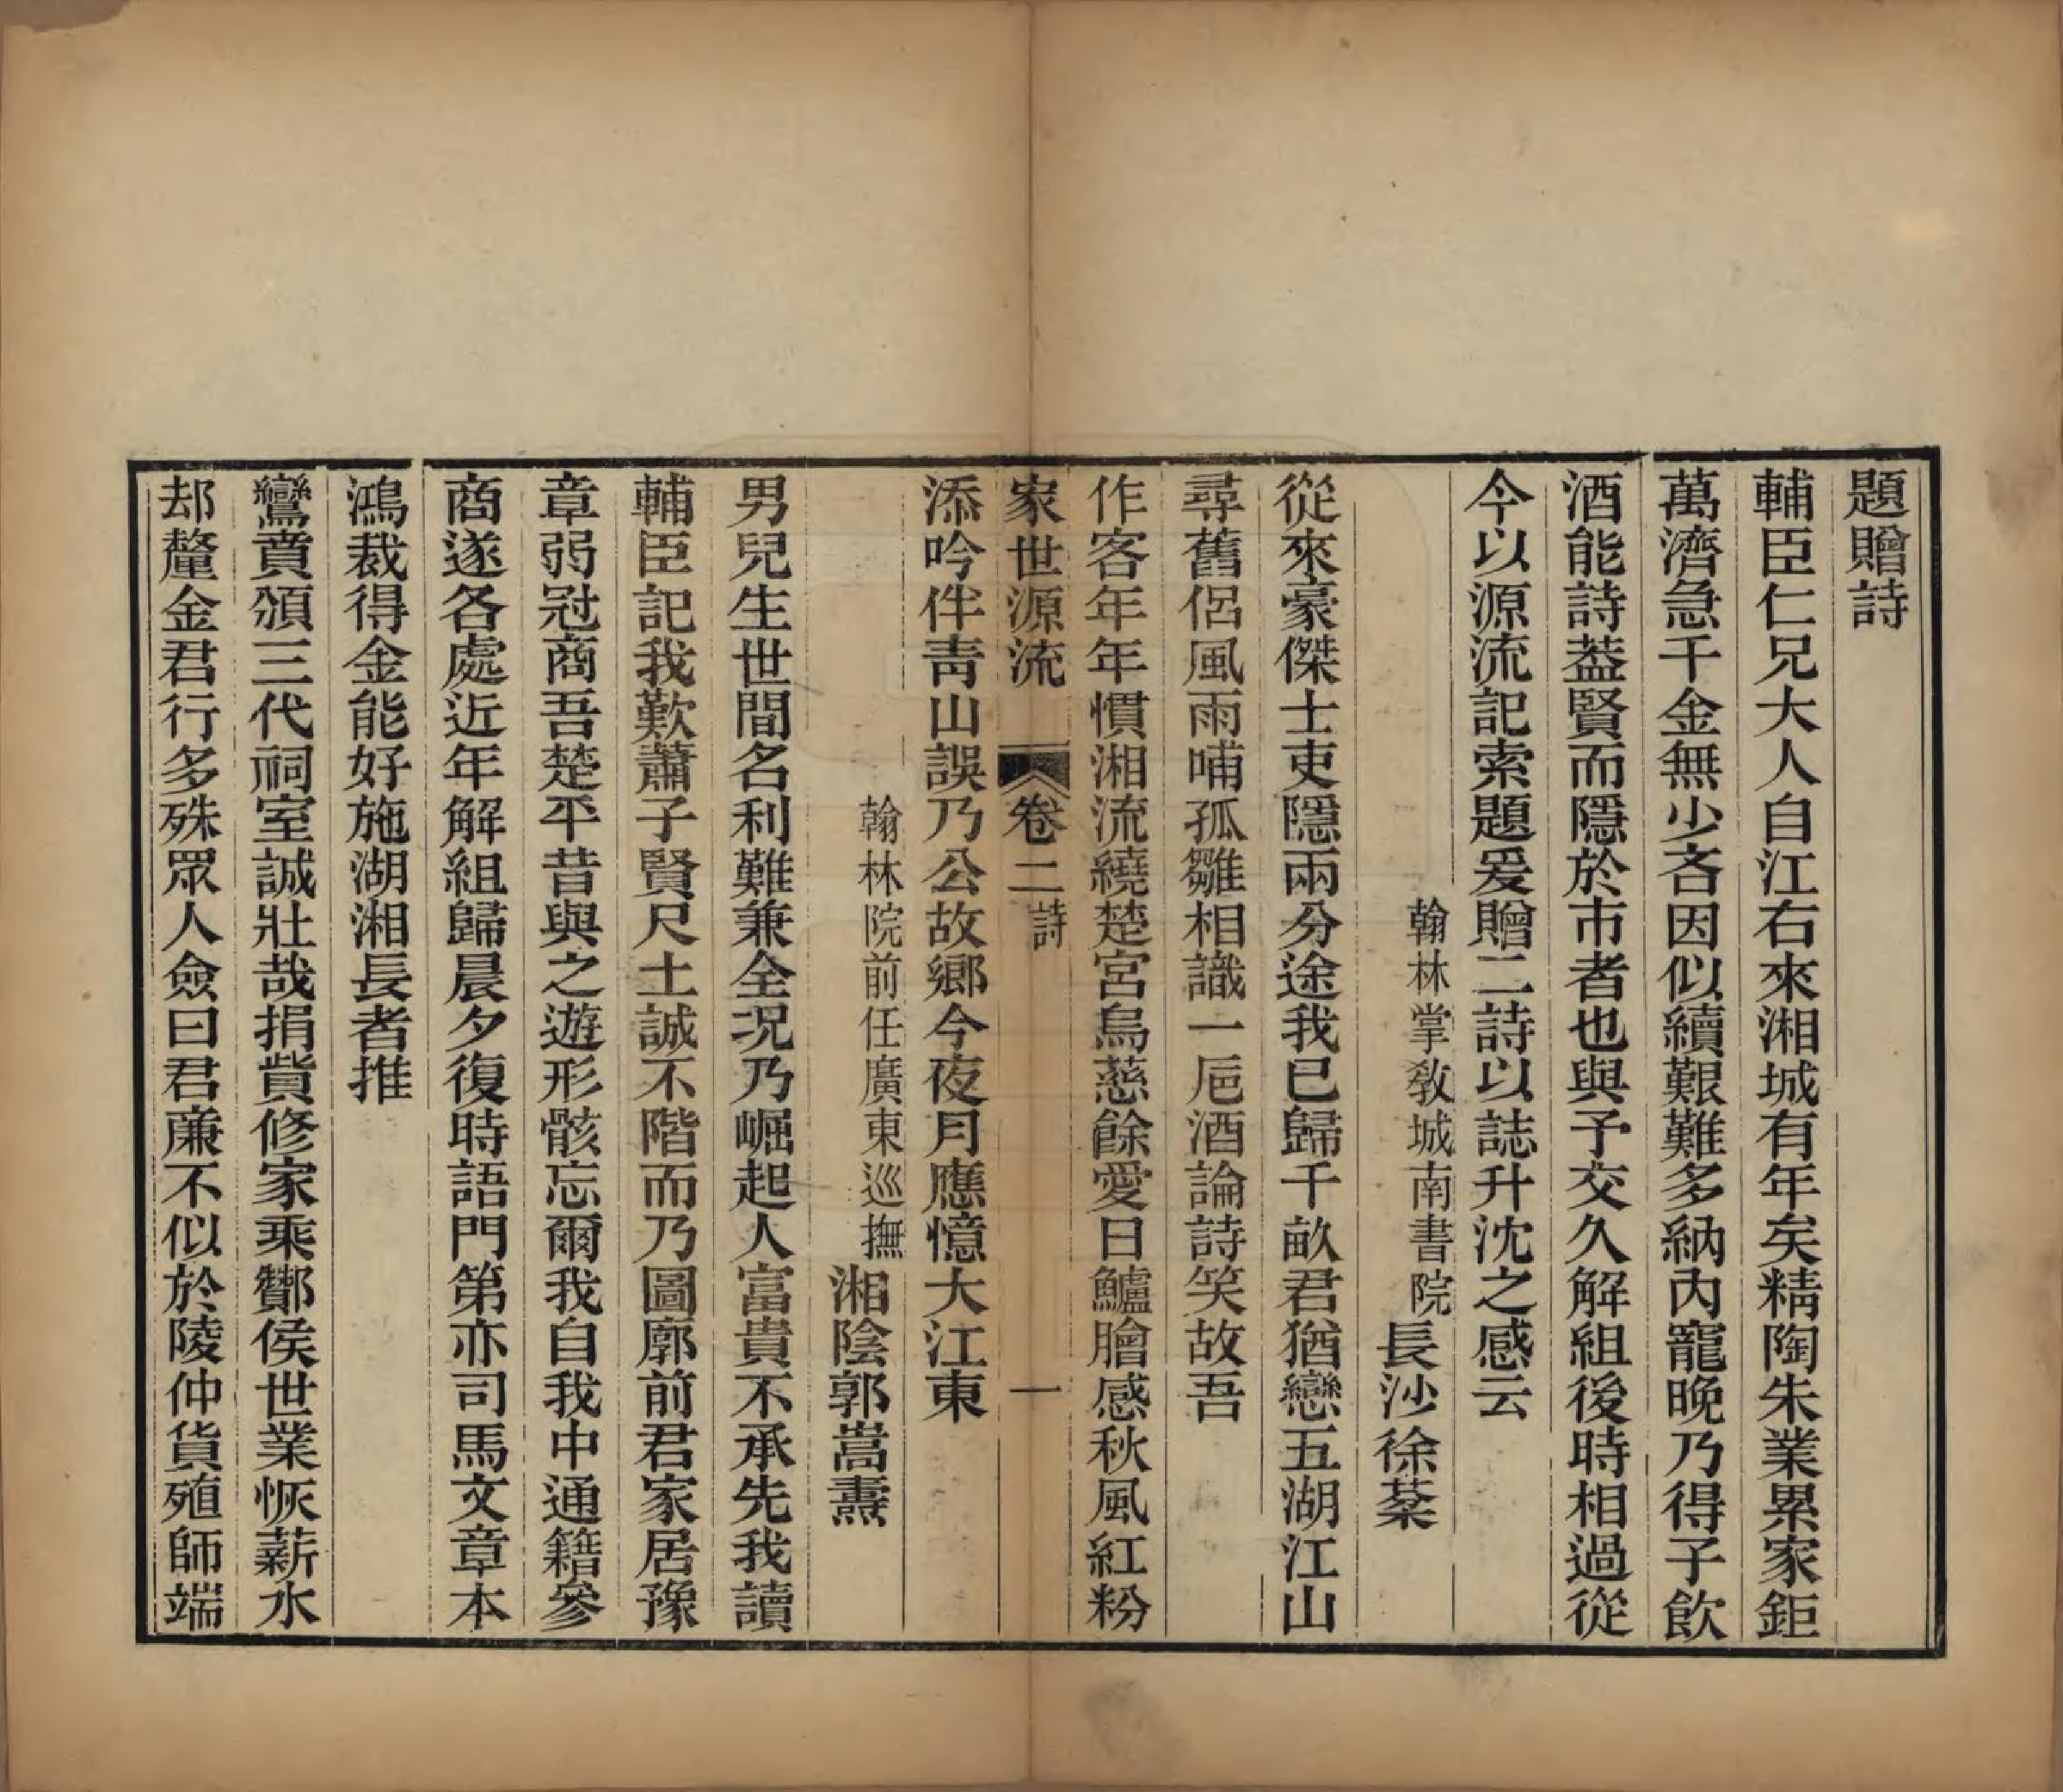 題贈詩
輔臣仁兄大人自江右來湘城有年矣精陶朱業累家鉅
萬濟急千金無少吝因似續艱難多納內寵晚乃得子飲
酒能詩葢賢而隱於市者也與予交久解組後時相過從
今以源流記索題爰贈二詩以誌升沈之感云
翰林掌教城南書院長沙徐棻
從來豪傑士吏隱兩分途我已歸千畝君猶戀五湖江山
尋舊侶風雨哺孤雛相識一巵酒論詩笑故吾
作客年年慣湘流繞楚宮烏慈餘愛日鱸膾感秋風紅粉
家世源流 卷二 詩 一
添吟伴靑山誤乃公故鄉今夜月應憶大江東
翰林院前任廣東巡撫湘陰郭嵩燾
男兒生世間名利難兼全況乃崛起人富貴不承先我讀
輔臣記我歎蕭子賢尺土誠不階而乃圖廓前君家居豫
章弱冠商吾楚平昔與之遊形骸忘爾我自我中通籍參
商遂各處近年解組歸晨夕復時語門第亦司馬文章本
鴻裁得金能好施湖湘長者推
鸞賁頒三代祠室誠壯哉捐貲修家乘酇侯世業恢薪水
却釐金君行多殊眾人僉曰君廉不似於陵仲貨殖師端